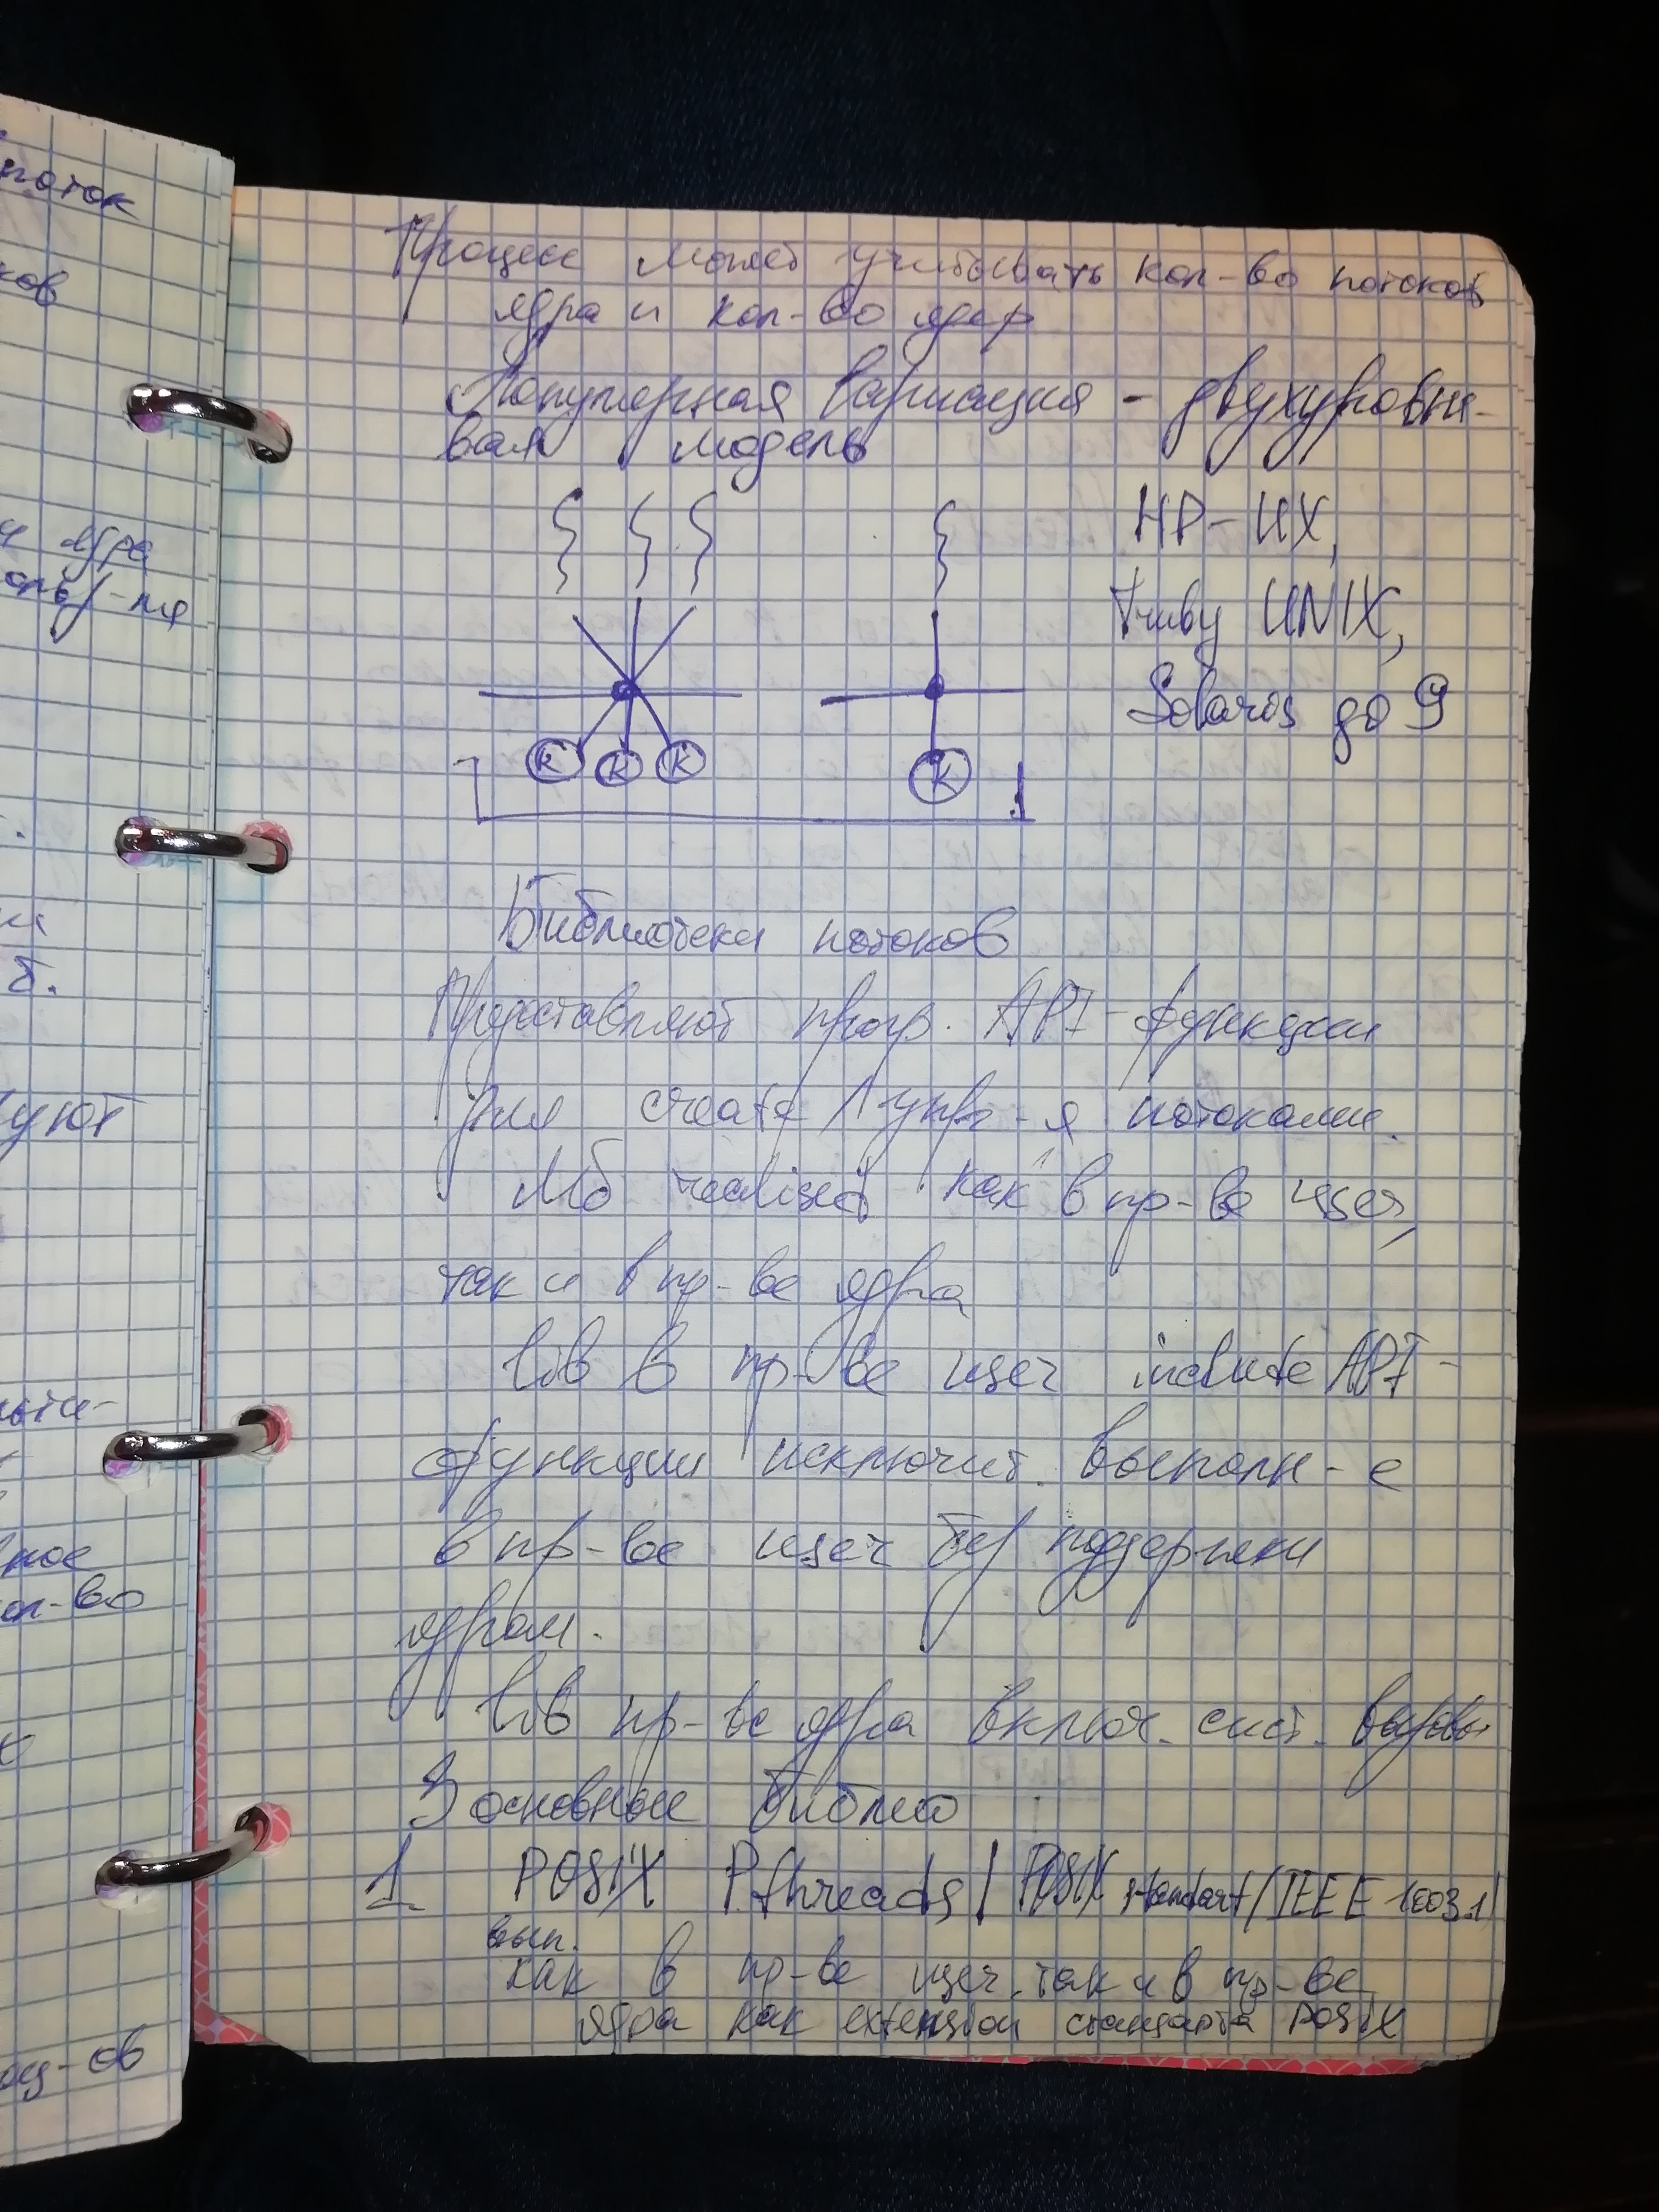 поток
ков
ядра
.
б.
уют
ное
кол-во
ов
Процесс может учитывать кол-во потоков
ядра и кол-во ядер
Популярная вариация - двухуровне-
вая модель
HP-UX,
Truby UNIX,
Solaros до 9
K K K K
Библиотеки потоков
Предоставляют прогр. API-функции
для create / упр-я потоками.
Мб realised как в пр-ве user,
так и в пр-ве ядра
lib в пр-ве user include API-
функции исключит. выполн-е
в пр-ве user без поддержки
ядром.
lib пр-ве ядра включ. сист. вызовы
3 основные библио
1 POSIX Pthreads / POSIX standart/IEEE 1003.1
вып.
как в пр-ве user так и в пр-ве
ядра как extension стандарта POSIX